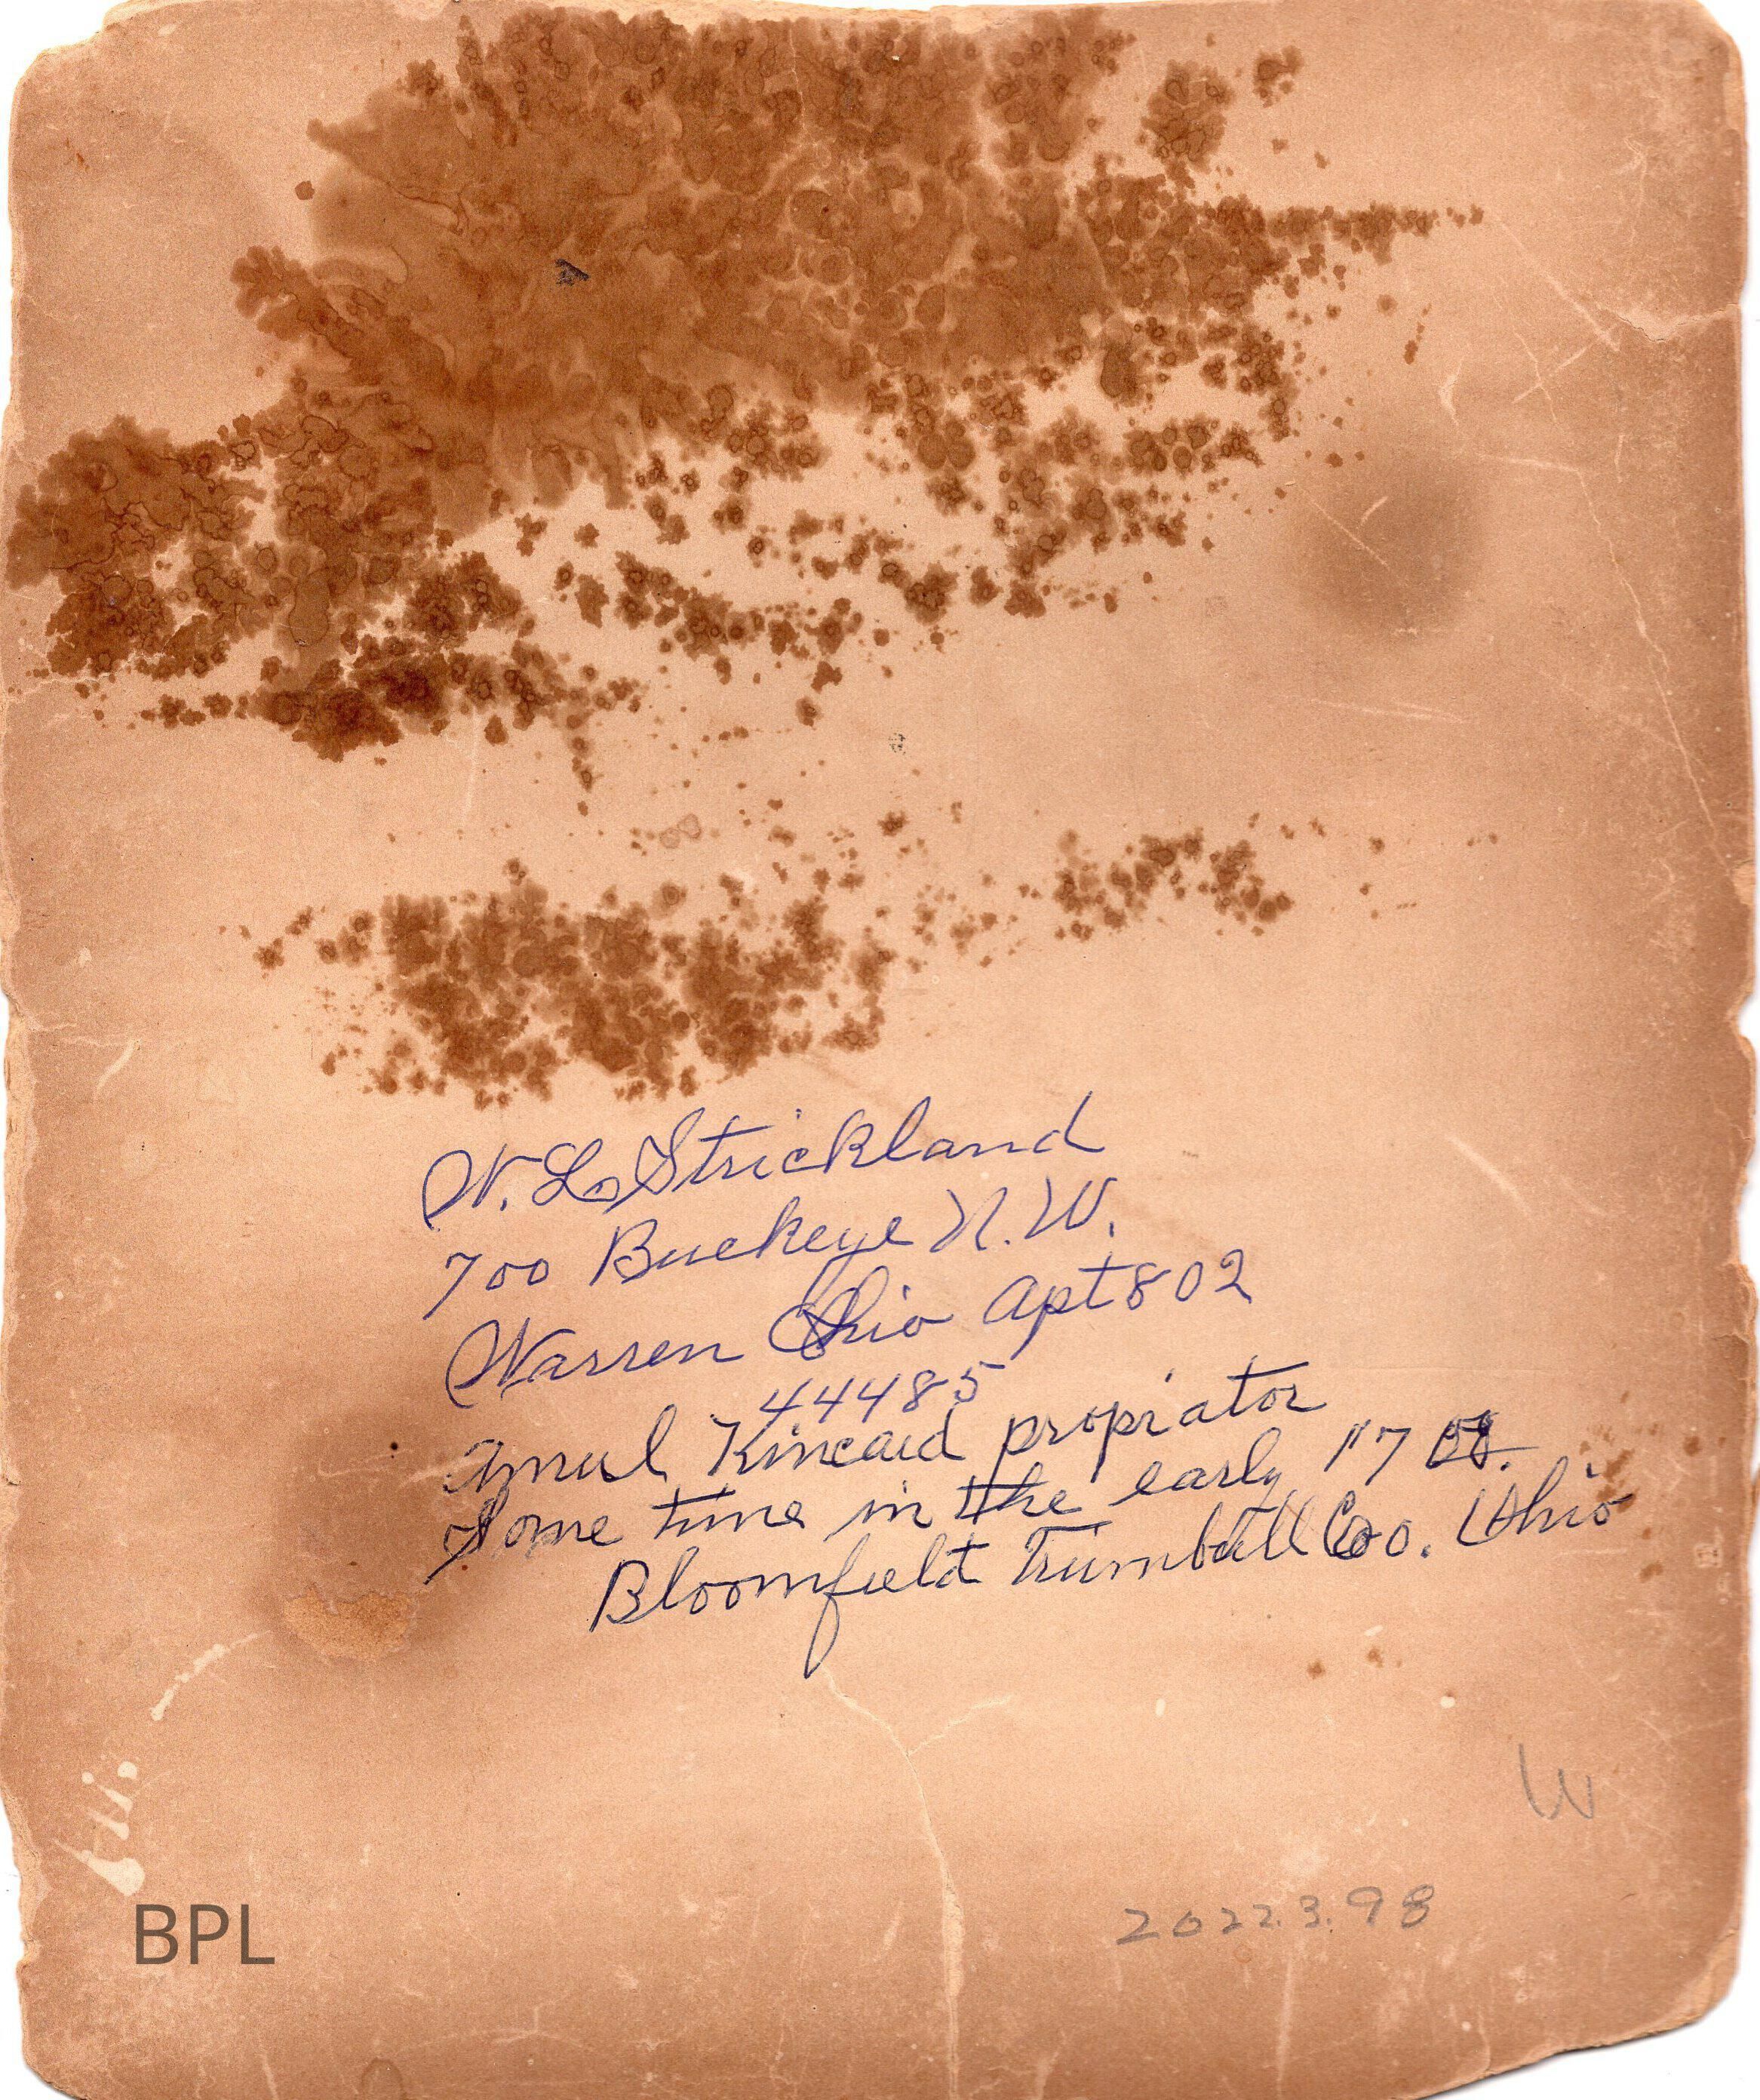 W. L. Strickland
700 Buckeye N.W.
Warren Ohio Apt 802
44485
Kincaid propriator
Some time in the early
Bloomfield Trumbull Co. Ohio
W
2022.3.98
BPL